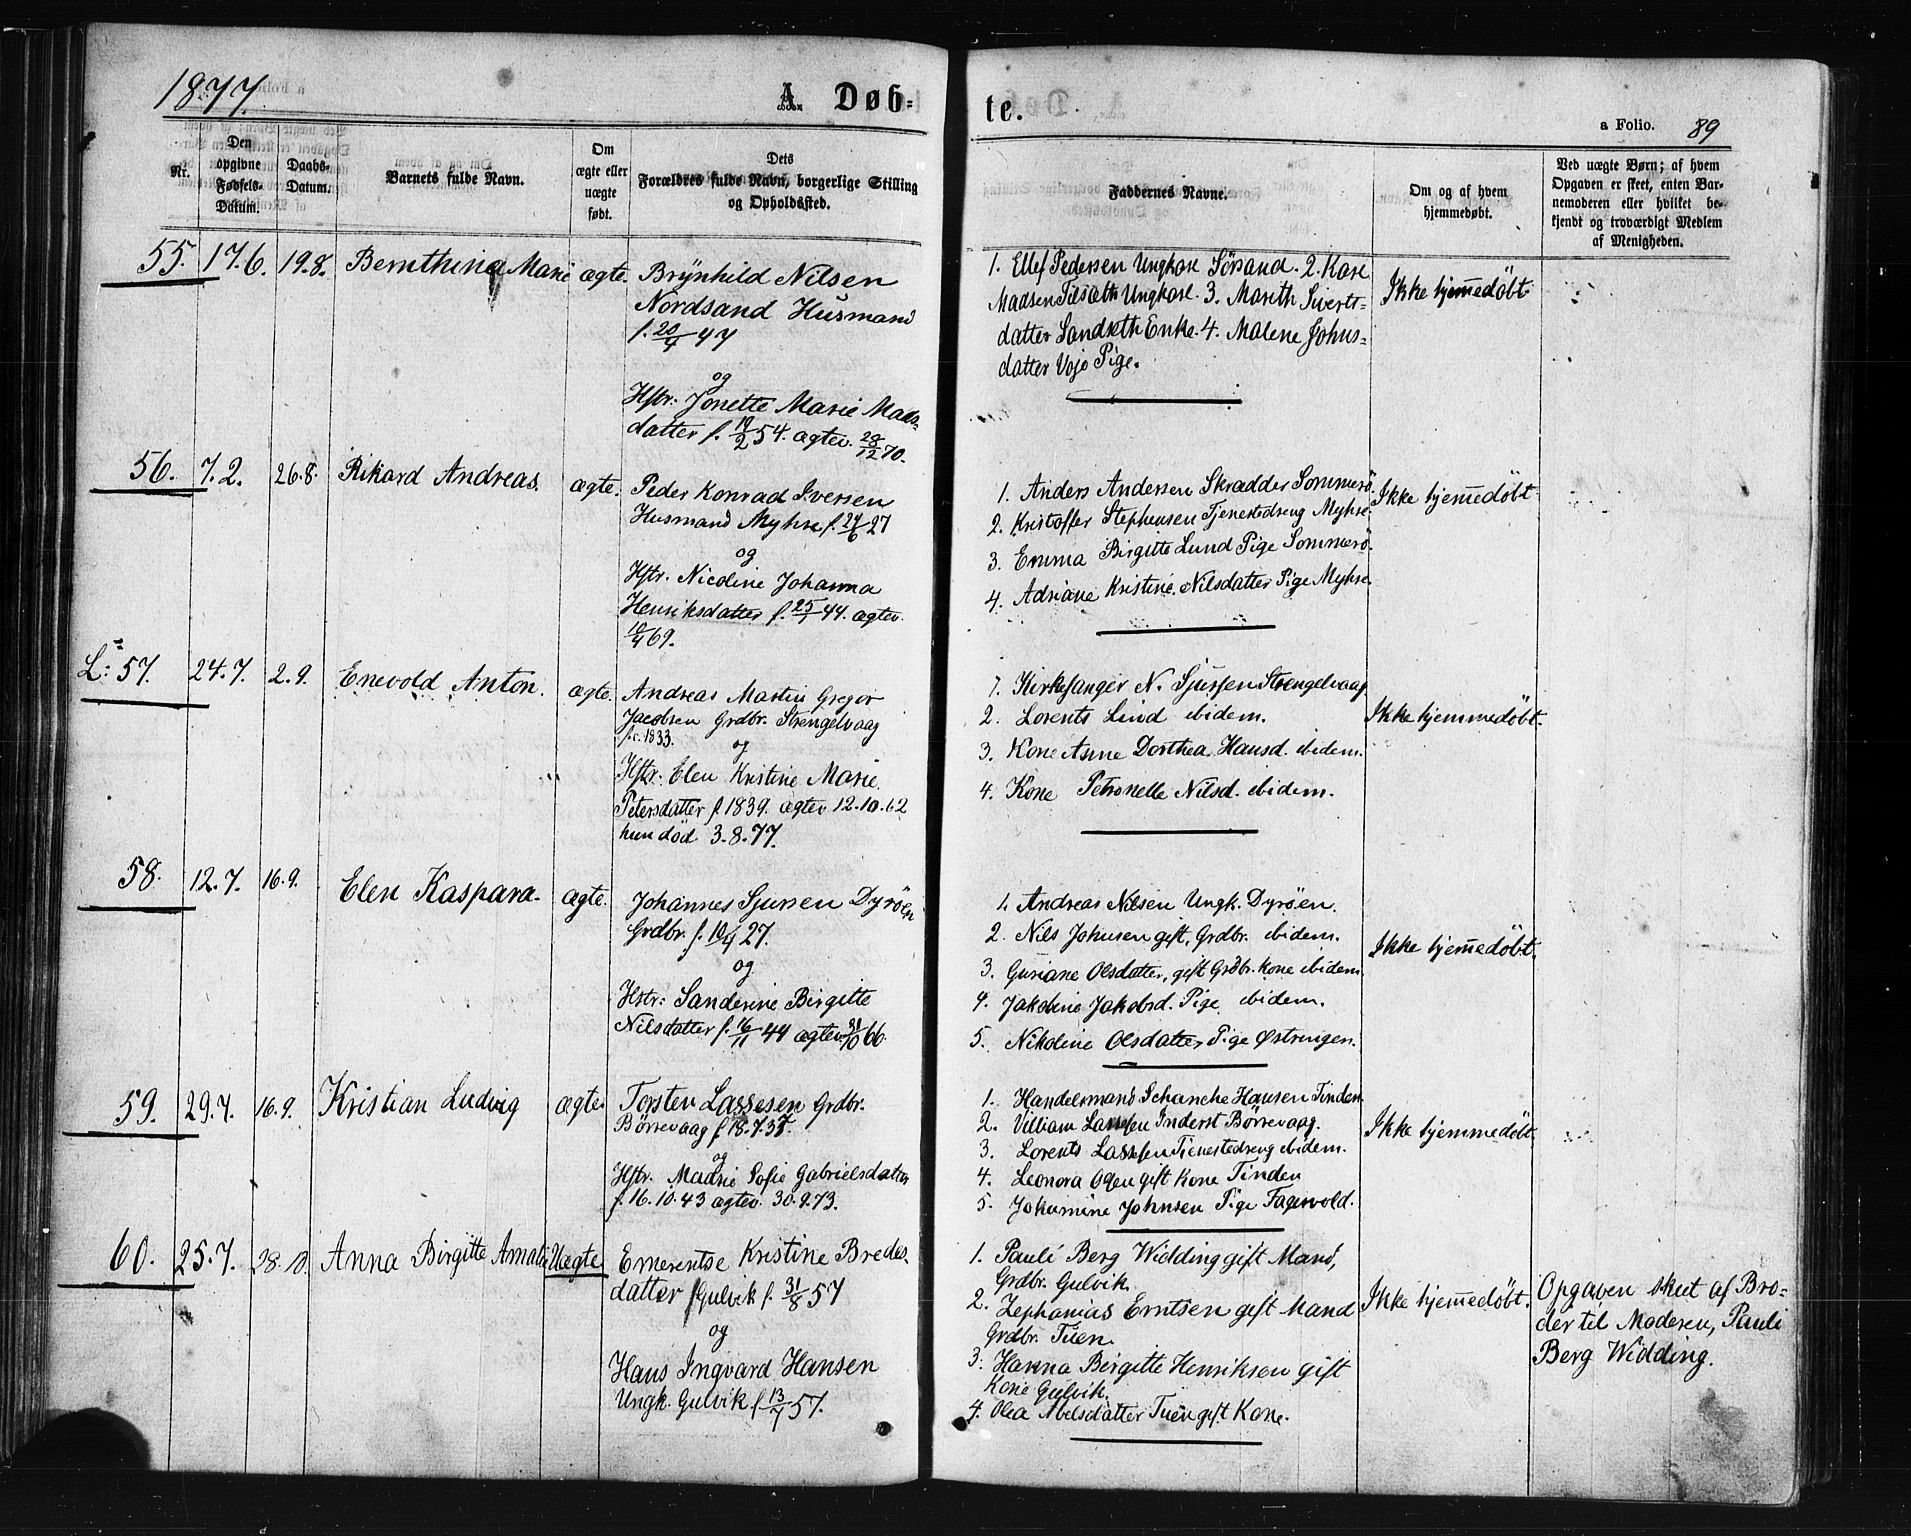 1877.
A. Døb-
te.
a Folio. 89
Nr.
Den
opgivne
Fødsels-
Datum.
Daabs-
Datum.
Barnets fulde Navn.
Om
ægte eller
uægte
født.
Dets
Forældres fulde Navn, borgerlige Stilling
og Opholdssted.
Faddernes Navne.
Om og af hvem
hjemmedøbt.
Ved uægte Børn; af hvem
Opgaven er skeet, enten Bar-
nemoderen eller hvilket be-
kjendt og troværdigt Medlem
af Menigheden.
55. 17.6. 19.8. Bernthina Marie ægte.
Brynhild Nilsen
Nordsand Husmand
f. 20/4 47
og
Hstr: Jonette Marie Mads-
datter f. 19/2 54. ægtev. 28/12 70.
1. Ellef Pedersen Ungkarl Sørsand. 2. Karl
Madsen Ungkarl. 3. Mareth Siverts-
datter Sandseth Enke. 4. Malene Johns-
datter Vojo Pige.
Ikke hjemmedøbt
56. 7.2. 26.8. Rikard Andreas. ægte.
Peder Konrad Iversen
Husmand Myhre f. 24/6 27
og
Hstr. Nicoline Johanna
Henriksdatter f. 25/1 44. ægtev.
10/4 69.
1. Anders Andersen Skrædder Sommerö
2. Kristoffer Stephensen Tjenestedreng Myhre
3. Emma Birgitte Lund Pige Sommerö.
4. Adriane Kristine Nilsdatter Pige Myhre.
Ikke hjemmedøbt
L: 57. 24.7. 2.9. Enevold Anton. ægte.
Andreas Martin Gregor
Jacobsen Grdbr. Strengelvaag
f. c. 1833.
og
Hstr. Elen Kristine Marie
Petersdatter f. 1839. ægtev 12.10.62
hun död 3.8.77.
1. Kirkesanger N. Sjursen Strengelvaag
2. Lorents Lind ibidem.
3. Kone Anne Dorthea Hansd. ibidem.
4. Kone Petronelle Nilsd. ibidem.
Ikke hjemmedøbt.
58. 12.7. 16.9. Elen Kaspara. ægte.
Johannes Sjursen Dyröen
Grdbr. f. 10/4 27.
og
Hstr: Sanderine Birgitte
Nilsdatter f. 16/11 44 ægtev 31/10 66.
1. Andreas Nilsen Ungk. Dyröen.
2. Nils Johnsen gift, Grdbr. ibidem.
3. Guriane Olsdatter, gift Grdbr. Kone ibidem
4. Jakobine Jakobsd. Pige ibidem.
5. Nikoline Olsdatter Pige Østrengen.
Ikke hjemmedøbt.
59. 29.7. 16.9. Kristian Ludvig ægte
Torsten Lassesen Grdbr.
Börrevaag f 18.7.37.
og
Hstr. Madrie Sofie Gabrielsdatter
f. 16.10.43 ægtev. 30.9.73.
1. Handelsmand Schanche Hansen Tinden
2. Villiam Lassesen Inderst Börrevaag.
3. Lorents Lassesen Tjenestedreng ibidem.
4. Leonora Olsen gift Kone Tinden
5. Johannine Johnsen Pige Fagervold.
Ikke hjemmedøbt.
60. 25.7. 28.10. Anna Birgitte Amalia Uægte
Emerentse Kristine Bredes-
datter Gulvik f. 31/8 57
og
Hans Ingvard Hansen
Ungk. Gulvik f 13/7 57.
1. Pauli Berg Widding gift Mand,
Grdbr. Gulvik.
2. Zephanias Erntsen gift Mand
Grdbr. Tuen.
3. Hanna Birgitte Henriksen gift
Kone Gulvik.
4. Olea Abelsdatter Tuen gift Kone.
Ikke hjemmedøbt.
Opgaven skeet af Bro-
der til Moderen, Pauli
Berg Widding.